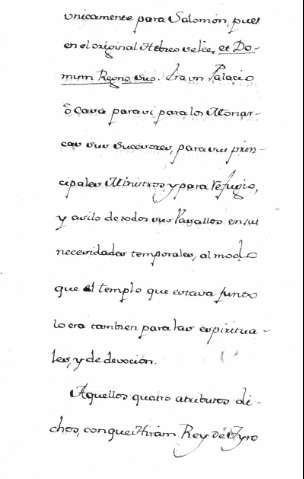 unicamente para Salomon, pues
en el original Hebreo se lee, et Do-
mum Regno suo. Era un Palacio
ô Cassa para si para los Monar-
cas sus Sucesores, para sus prin-
cipales Ministros, y para refugio,
y asilo de todos sus Vasallos en sus
necesidades temporales, al modo
que el templo que estava junto
lo era tambien para las espiritua-
les, y de devoción.
Aquellos quatro atributos di-
chos, con que Hiram Rey de Tyro